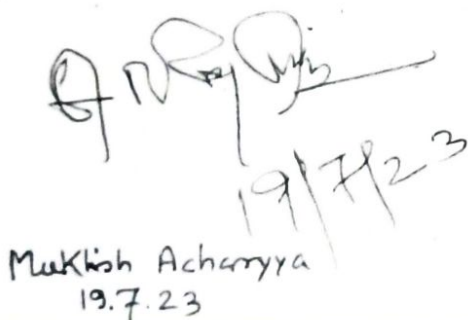 19/7/23
Muktish Acharyya
19.7.23